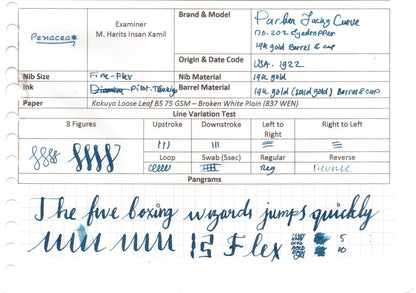 Penacea
Examiner
M. Harits Insan Kamil
Brand & Model
Parker Lucky Curve
no. 202 Eyedropper
14k gold Barrel & cap
Origin & Date Code
USA. 1922
Nib Size
Fine-Flex
Nib Material
14k gold
Ink
Pilot
Barrel Material
14k gold (solid gold) Barrel & cap
Paper
Kokuyo Loose Leaf B5 75 GSM – Broken White Plain (837 WEN)
Line Variation Test
8 Figures
Upstroke
Downstroke
Left to Right
Right to Left
Loop
Swab (5sec)
Regular
Reverse
Reg
Reverse
Pangrams
The five boxing wizards jumps quickly
Flex
5
10